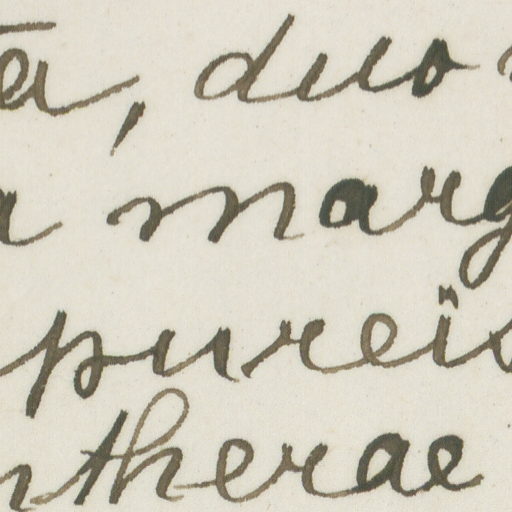 ta, duo
a marg
pureis
ntherae